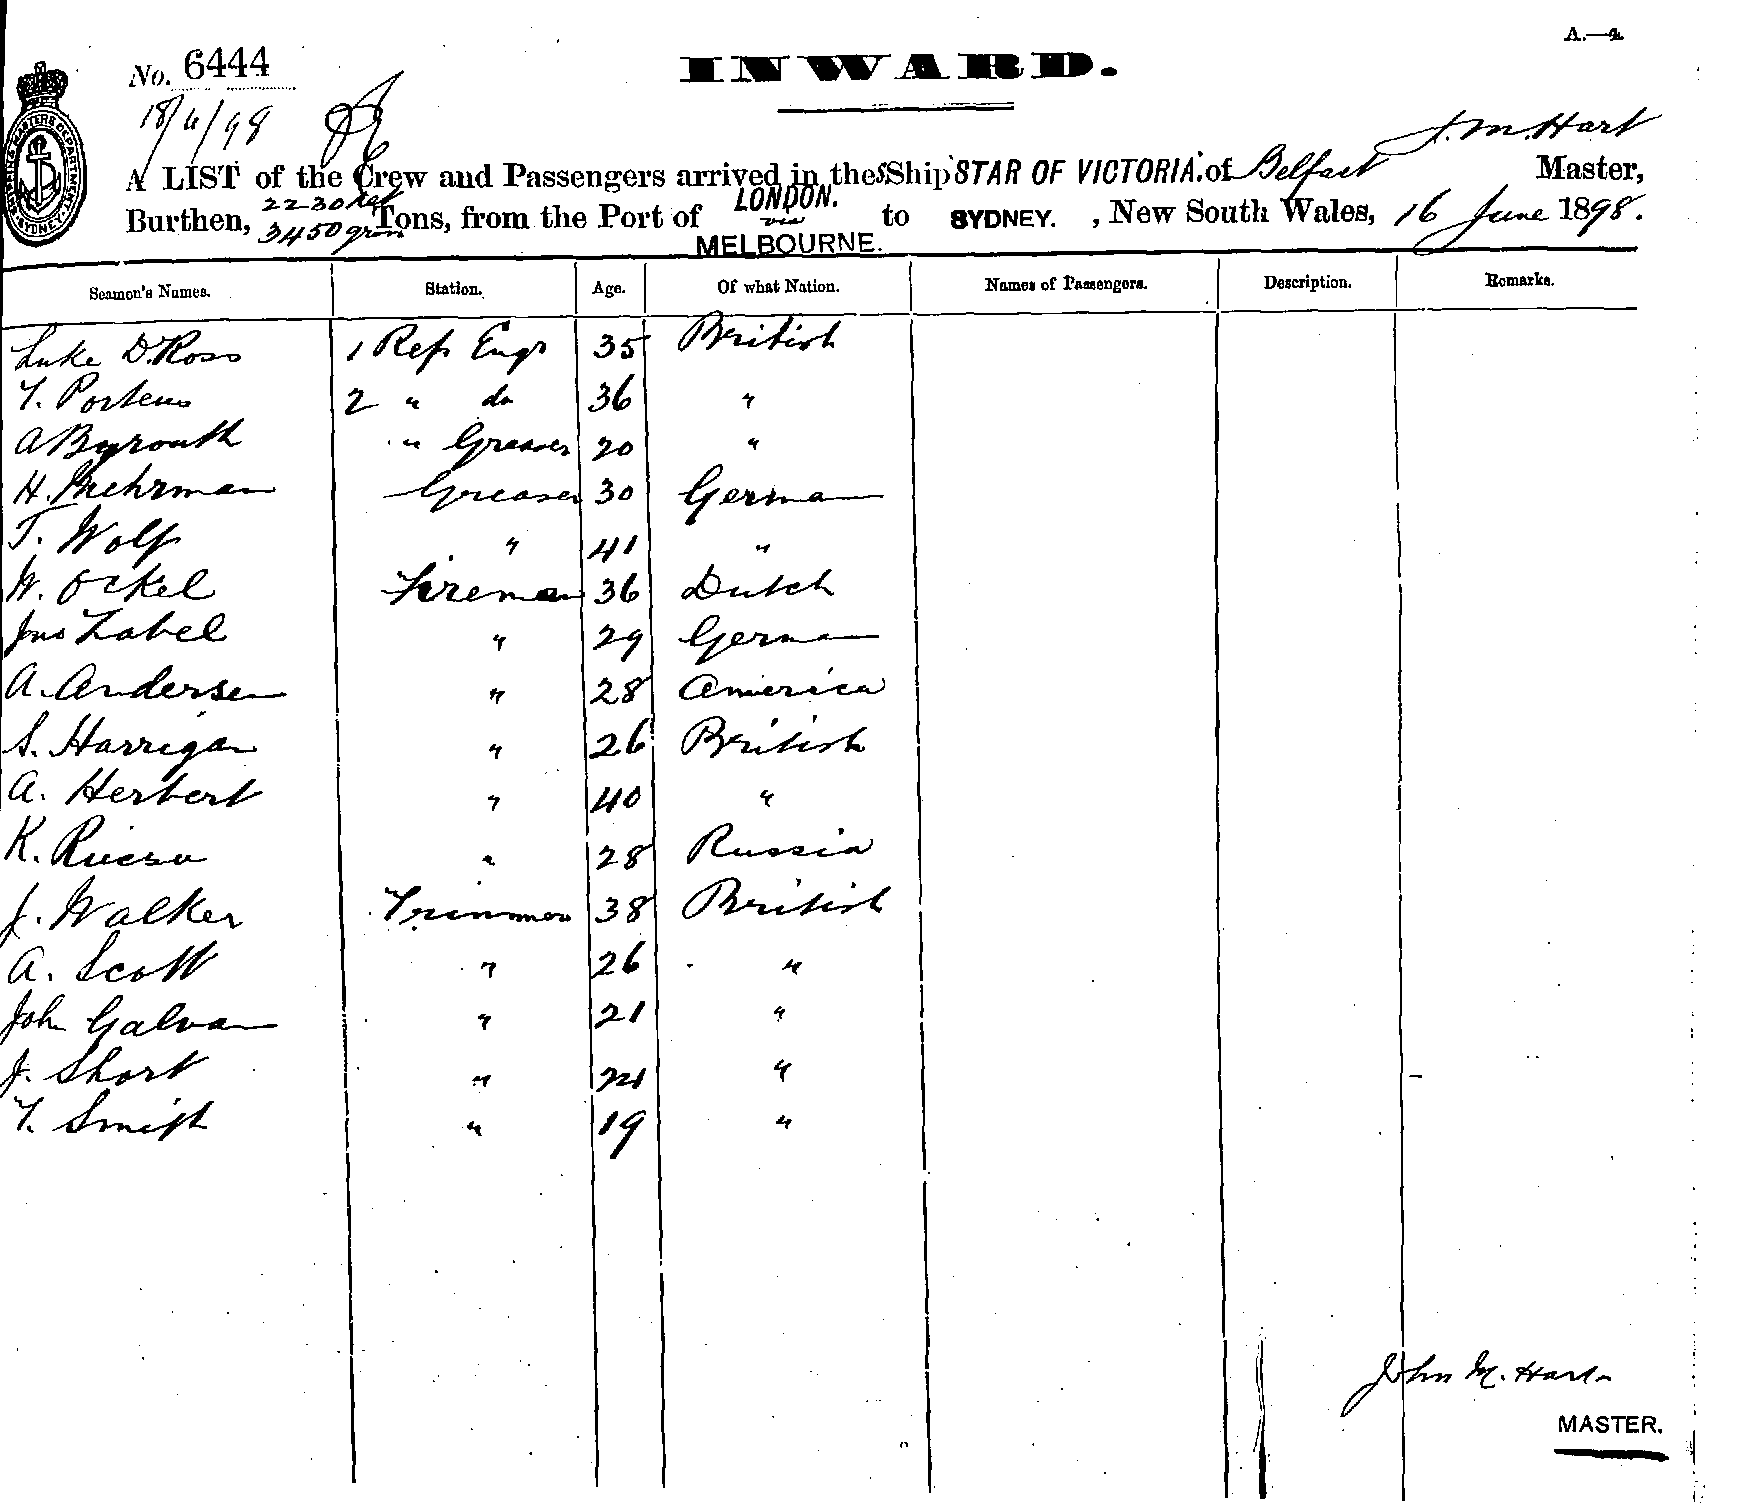 A.—4.
No. 6444
INWARD.
18/6/98
J. M. Hart
A LIST of the Crew and Passengers arrived in the S Ship STAR OF VICTORIA. of Belfast Master,
Burthen, 2230 net 3450 gross Tons, from the Port of LONDON. via MELBOURNE. to SYDNEY. , New South Wales, 16 June 1898.
Seamen's Names. Station. Age. Of what Nation. Names of Passengers. Description. Remarks.
Luke D. Ross 1 Refr Engr 35 British
T. Porteus 2 " do 36 "
A Byrouth " Greaser 20 "
H. Greaser 30 German
T. Wolf " 41 "
W. Ockel Fireman 36 Dutch
Jno Zabel " 29 German
A. Andersen " 28 America
S. Harrigan " 26 British
A. Herbert " 40 "
K. " 28 Russia
J. Walker Trimmer 38 British
A. Scott " 26 "
John Galvan " 21 "
J. Short " 21 "
T. Smith " 19 "
John M. Hart
MASTER.